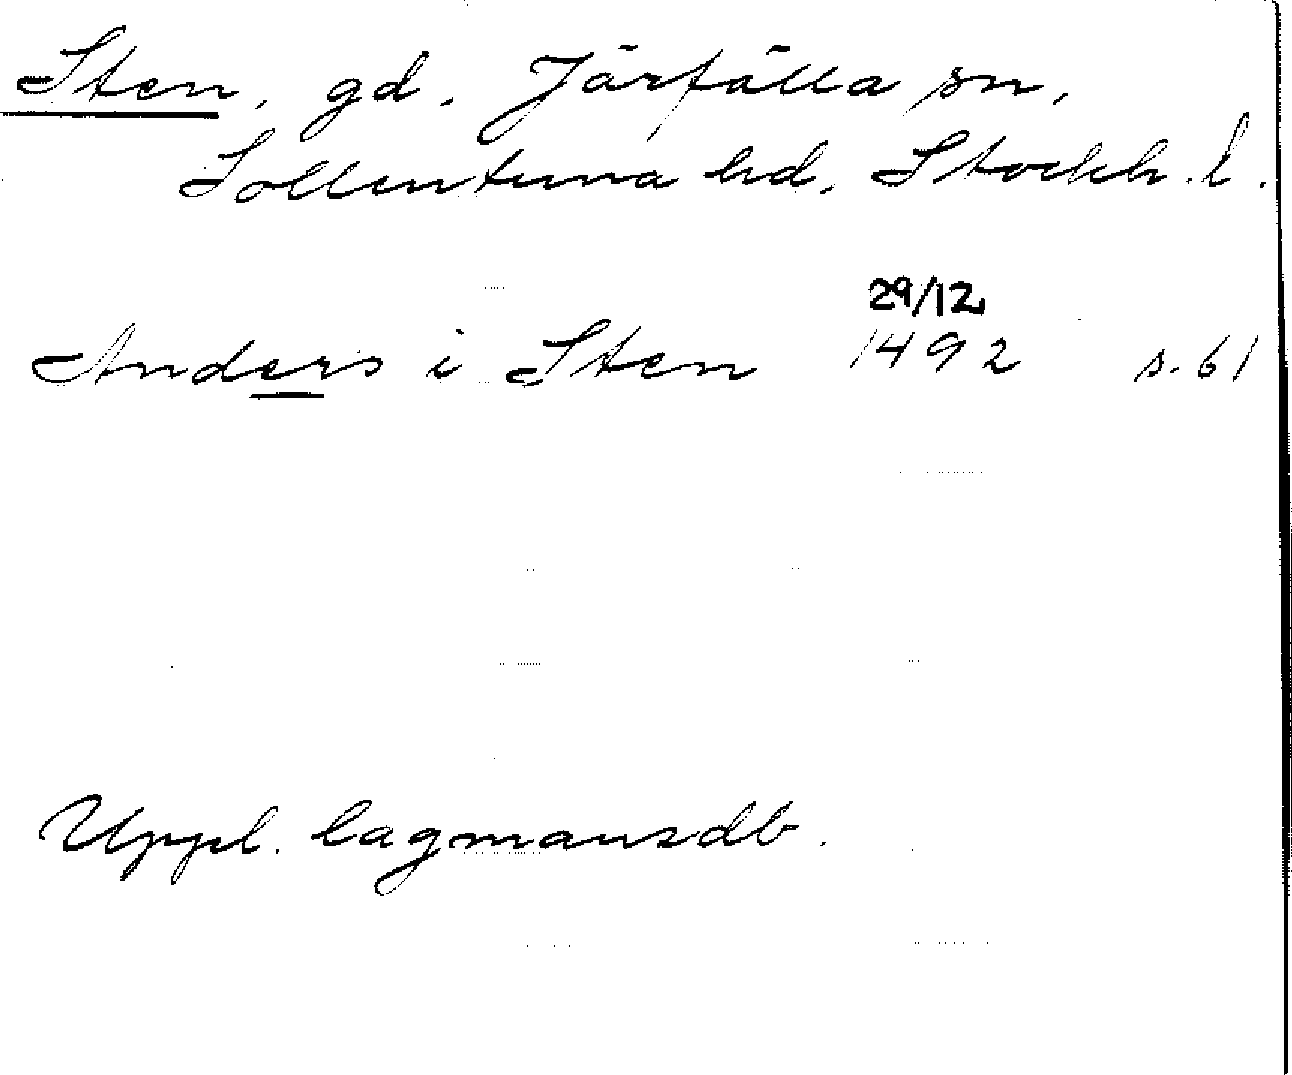 Sten, gd. Järfälla sn,
Sollentuna hd, Stockh. l.
29/12
Anders i Sten 1492 s. 61
Uppl. lagmansdb.